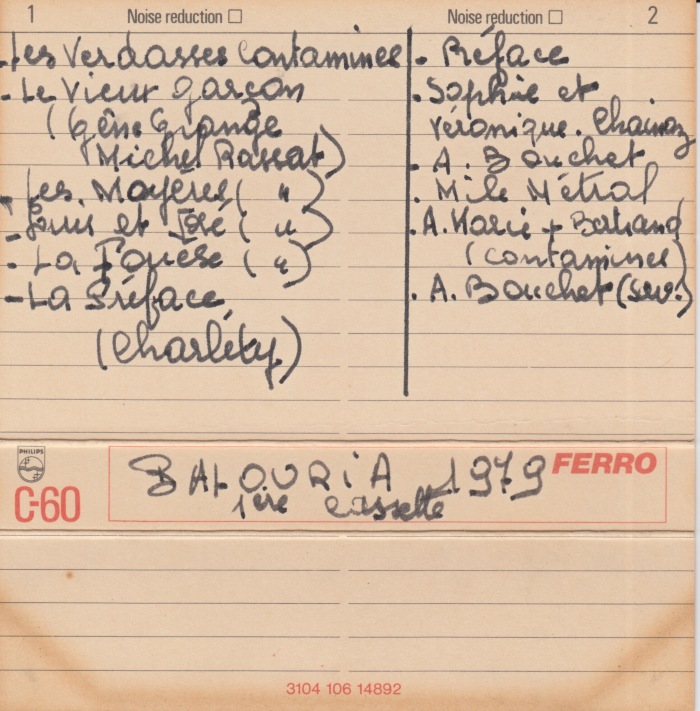 1 Noise reduction
- Les Verdasses Contamines
- Le Vieux garçon
(Gêne Grange
Michel Rassat)
- Les Moyères ( " )
- et José ( " )
- La ( " )
- La Préface
(Charléty)
Noise reduction 2
- Préface
. Sophie et
Véronique. Chainaz
. A. Bouchet
. Mile Métral
. A. Marie + Bertrand
(contamines)
. A. Bouchet (suv.)
PHILIPS
C-60
BALOURIA 1979
1ère Cassette
FERRO
3104 106 14892